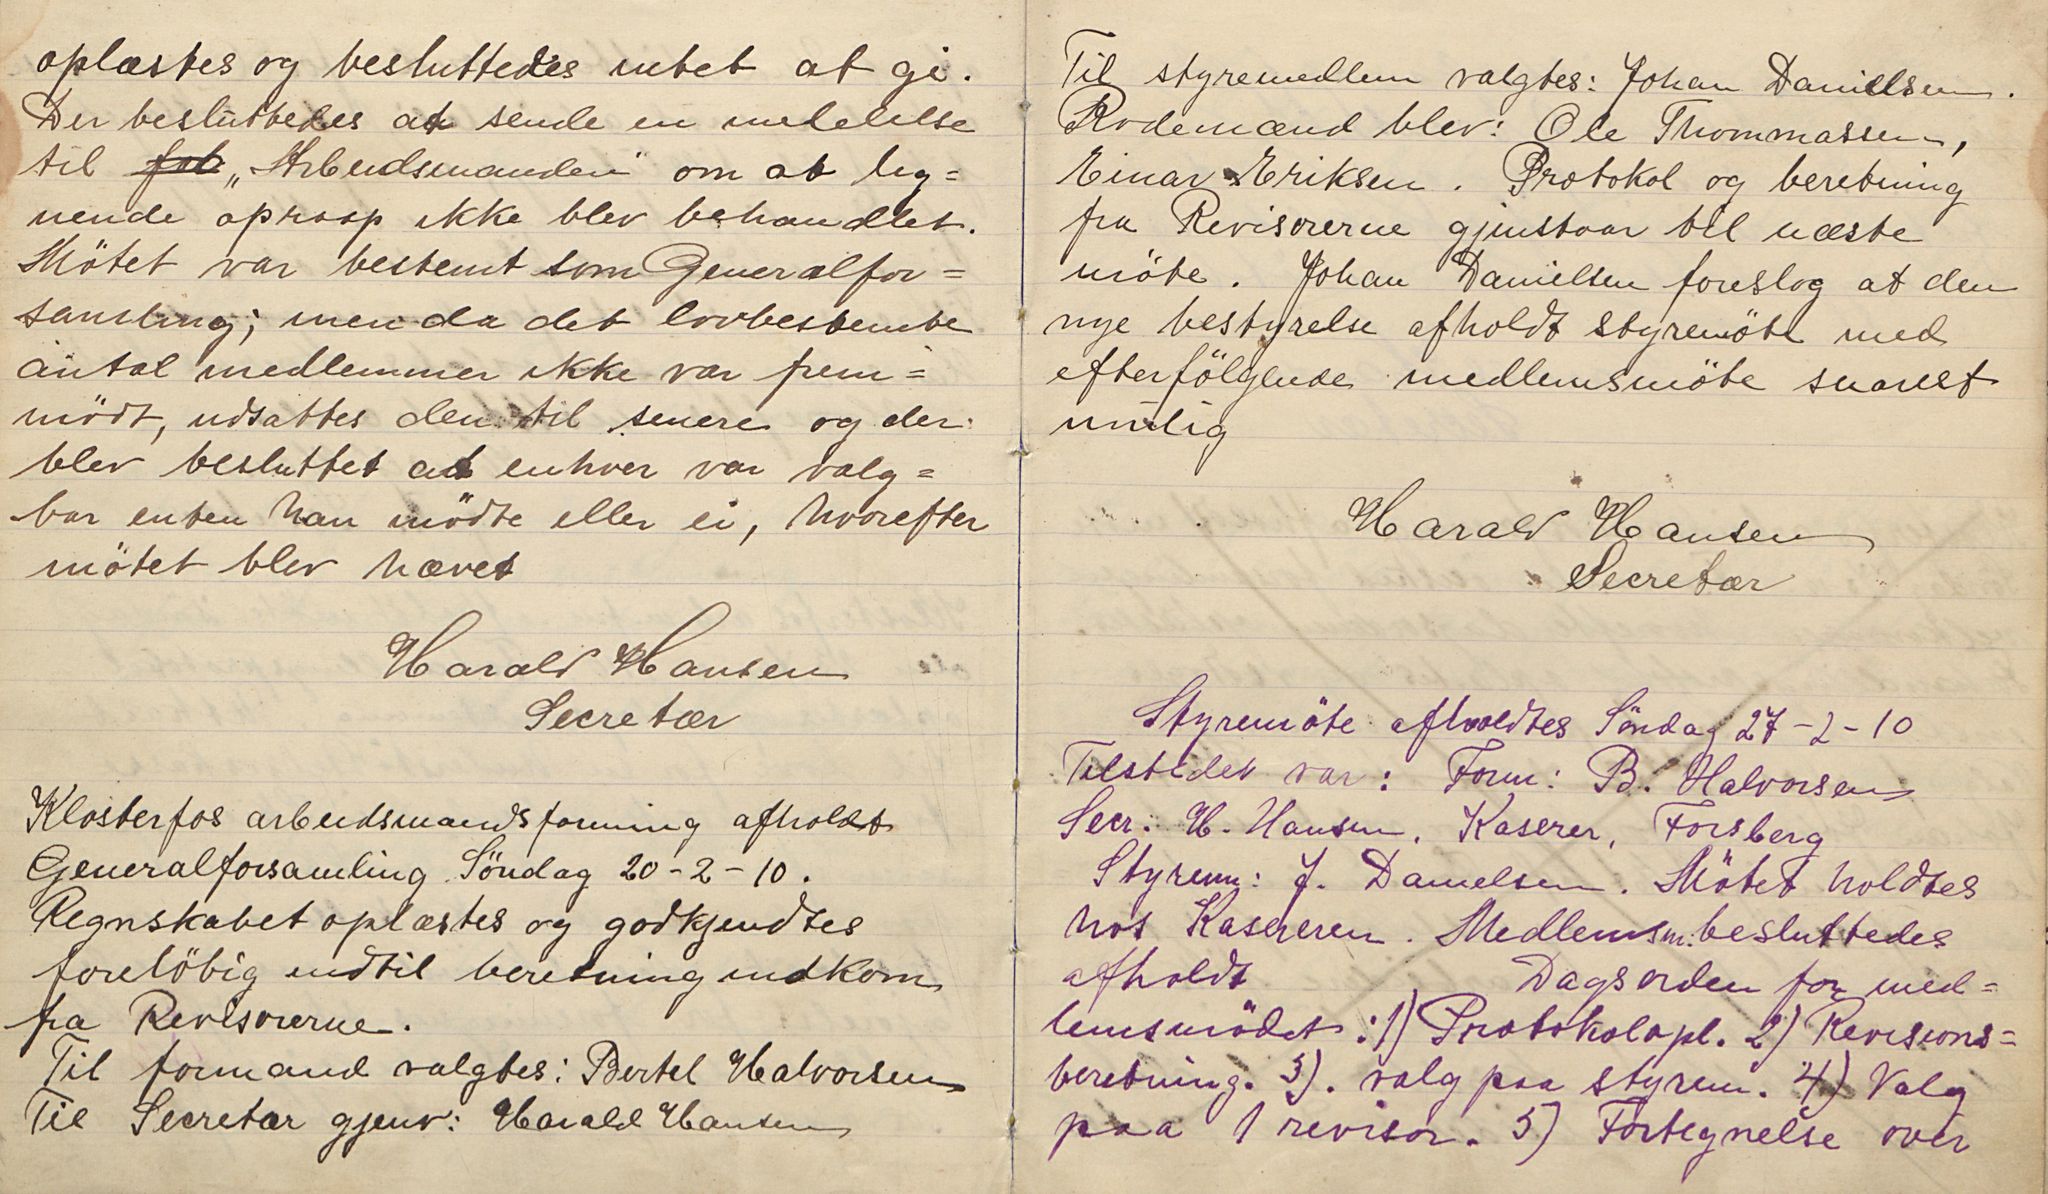 oplæstes og besluttedes intet at gi.
Der besluttedes at sende en meddelse
til "Arbeidsmanden" om at lig=
nende opraap ikke blev behandlet.
Mötet var bestemt som Generalfor=
samling; men da det lovbestemte
antal medlemmer ikke var frem=
mödt, udsattes den til senere og der
blev besluttet at enhver var valg=
bar enten han mödte eller ei, hvorefter
mötet blev hævet
Harald Hansen
Secretær
Klosterfos arbeidsmandsforening afholdt
Generalforsamling Söndag 20-2-10.
Regnskabet oplæstes og godkjendtes
forelöbig indtil beretning indkom
fra Revisorerne.
Til formand valgtes: Bertel Halvorsen
Til Secretær gjenv: Harald Hansen
Til styremedlem valgtes: Johan Danielsen.
Rodemænd blev: Ole Thommassen,
Einar Eriksen. Protokol og beretning
fra Revisorerne gjenstaar til næste
möte. Johan Danielsen foreslog at den
nye bestyrelse afholdt styremöte med
efterfölgende medlemsmöte snarest
mulig
Harald Hansen
Secretær
Styremöte afholdtes Söndag 27-2-10
Tilstedet var: Form: B. Halvorsen
Secr. H. Hansen, Kaserer, Forsberg
Styrem: J. Danielsen. Mötet holdtes
hos Kasereren. Medlemsm. besluttedes
afholdt Dagsorden for med=
lemsmödet: 1) Protokolopl. 2) Revisions=
beretning. 3). valg paa styrem. 4) Valg
paa 1 revisor. 5) Fortegnelse over